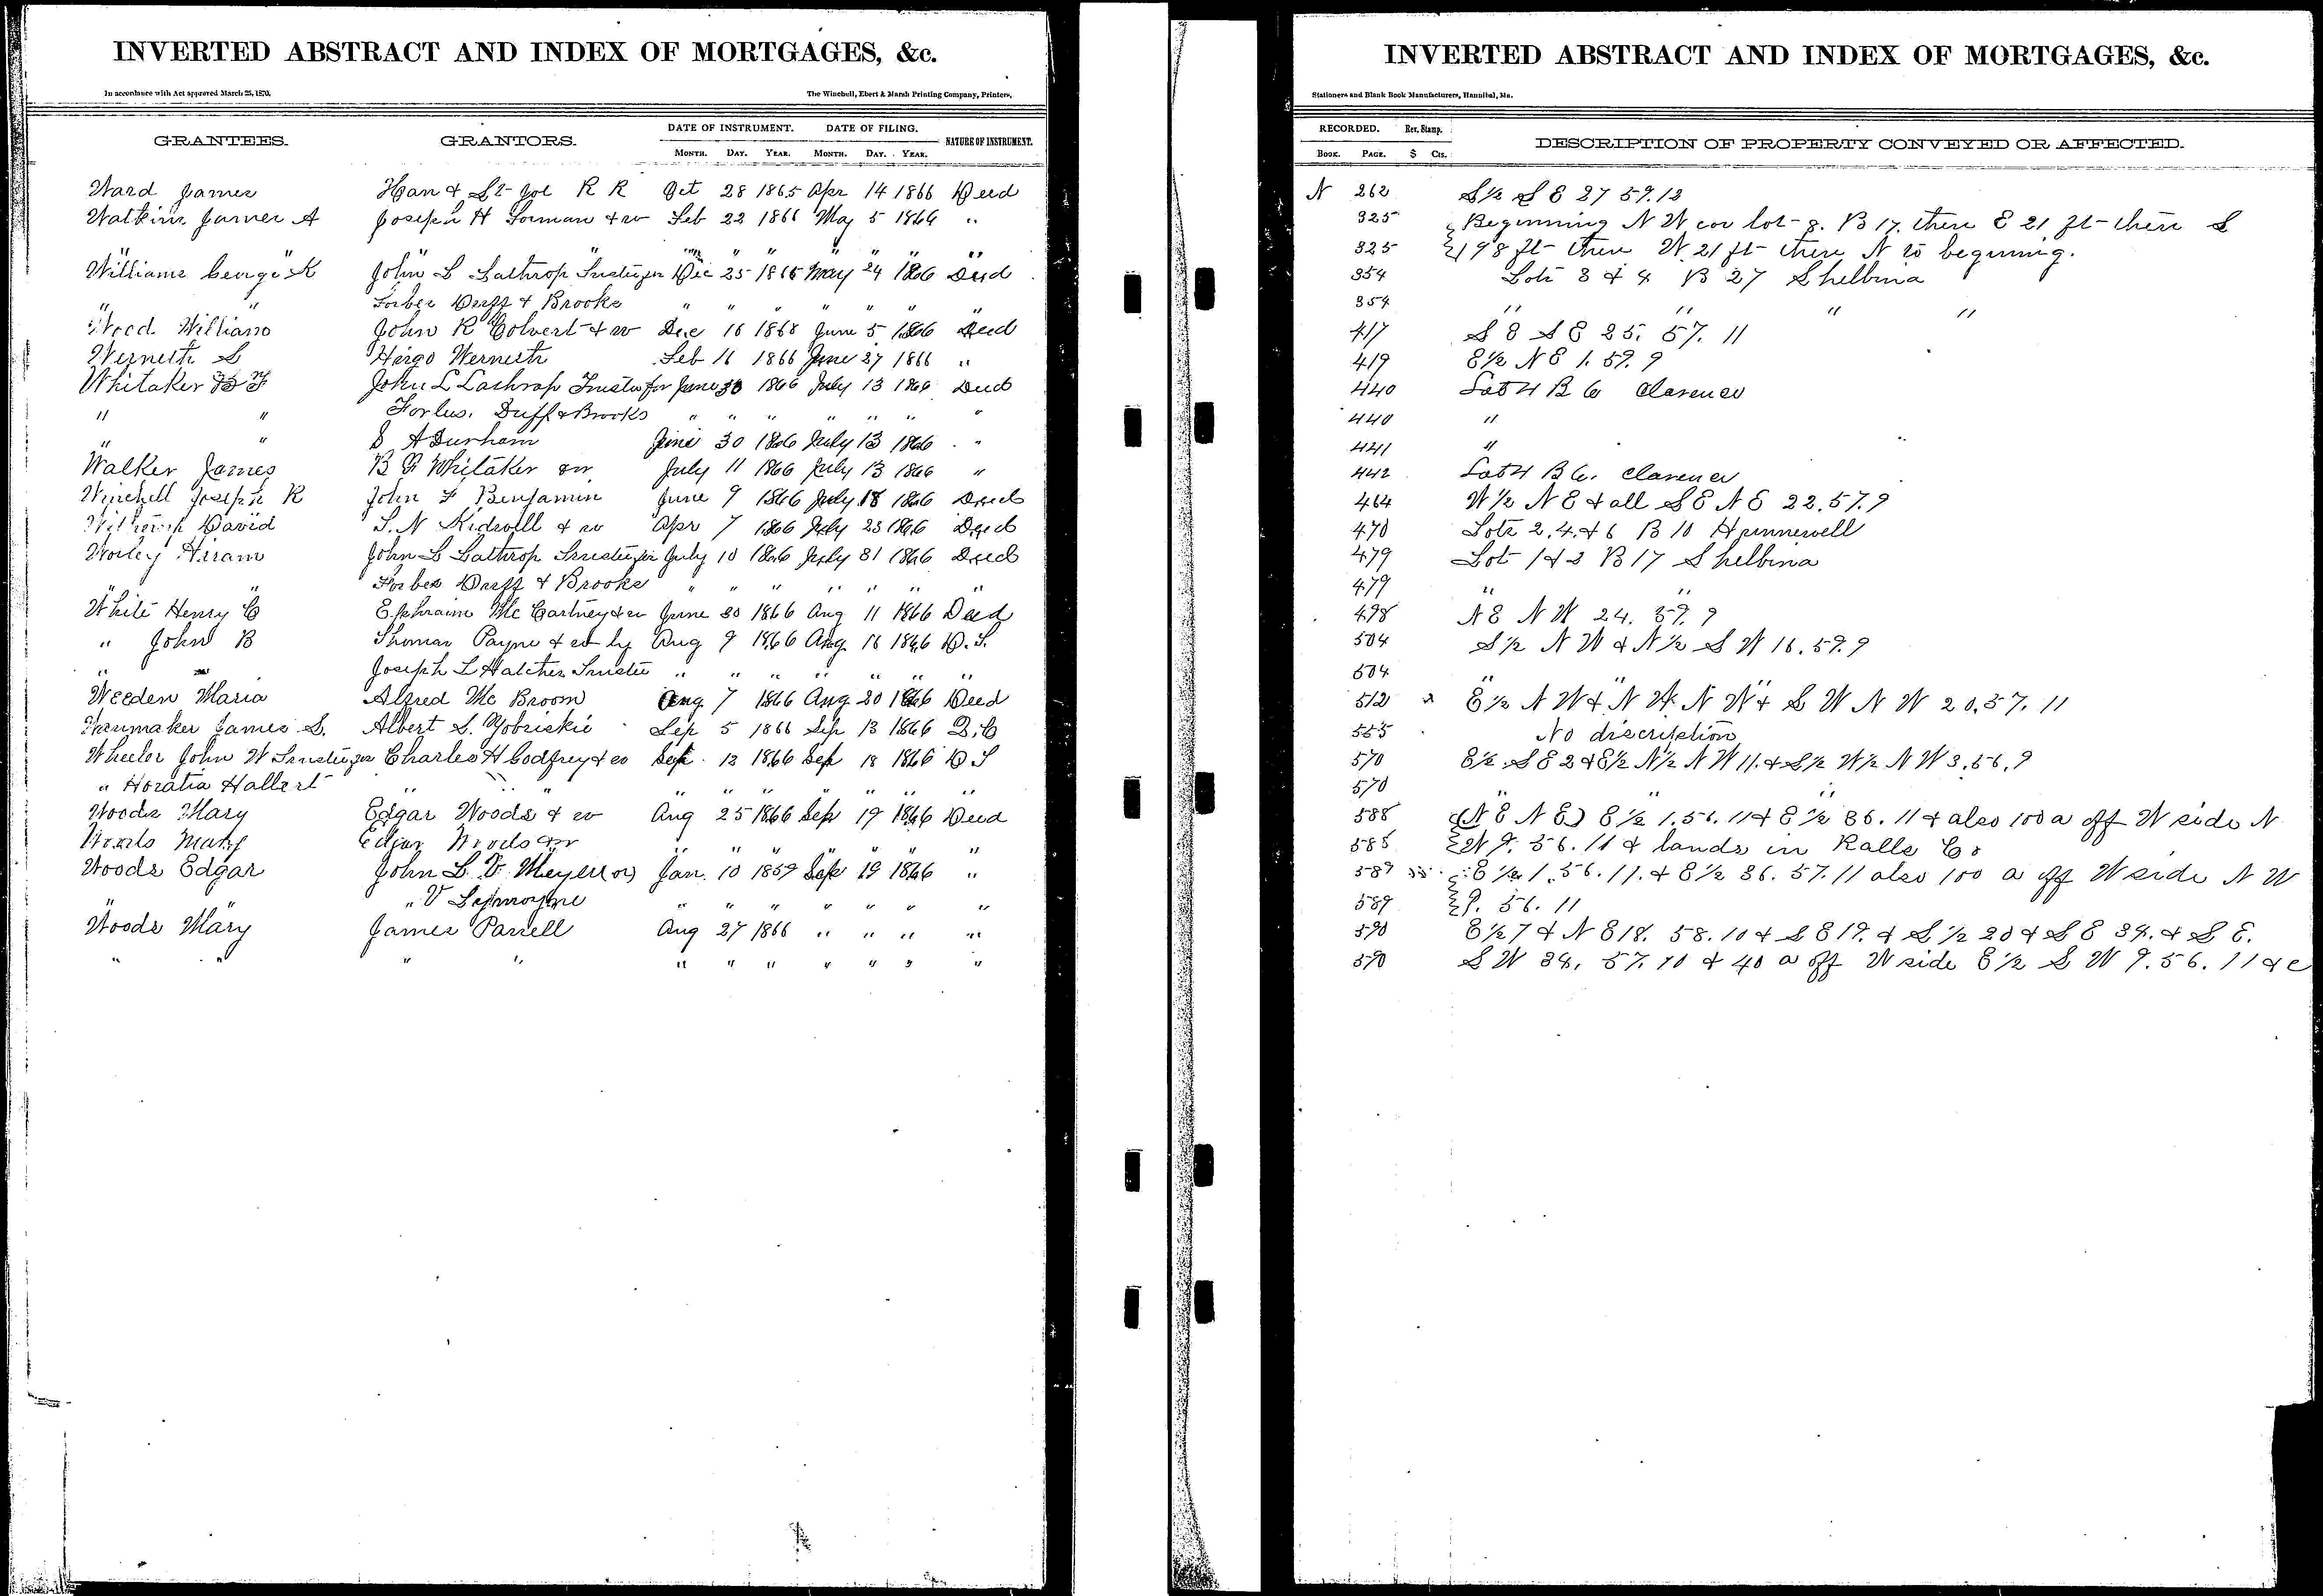 INVERTED ABSTRACT AND INDEX OF MORTGAGES, &c.
In accordance with Act approved March 25, 1870. The Winchell, Ebert & Marsh Printing Company, Printers,
GRANTEES. GRANTORS. DATE OF INSTRUMENT. DATE OF FILING. NATURE OF INSTRUMENT.
MONTH. DAY. YEAR. MONTH. DAY. YEAR.
Ward James Han & St Joe R R Oct 28 1865 Apr 14 1866 Deed
Watkins James A Joseph H Forman & w Feb 22 1866 May 5 1866 "
" " " " " " " " " "
Williams George K John L Lathrop Trustee for Dec 25 1865 May 24 1866 Deed
" " Forbes Duff & Brooks " " " " " " "
Wood William John R Colvert & w Dec 16 1865 June 5 1866 Deed
Werneth S Hargo Werneth Feb 16 1866 June 27 1866 "
Whitaker B F John L Lathrop Trustee for June 30 1866 July 13 1866 Deed
" " Forbes, Duff & Brooks " " " " " " "
" " S A Durham June 30 1866 July 13 1866 "
Walker James B F Whitaker & w July 11 1866 July 13 1866 "
Winchell Joseph R John F Benjamin June 9 1866 July 18 1866 Deed
David S. N Kidwell & w Apr 7 1866 July 23 1866 Deed
Worley Hiram John L Lathrop Trustee for July 10 1866 July 31 1866 Deed
" Forbes Duff & Brooks " " " " " " "
White Henry C Ephraim McCartney & w June 30 1866 Aug 11 1866 Deed
" John B Thomas Payne & w by Aug 9 1866 Aug. 16 1866 D. T.
" " Joseph L Hatcher Trustee " " " " " " "
Weeden Maria Alfred Mc Broom Aug 7 1866 Aug 20 1866 Deed
Wanmaker James S. Albert S. Yobriskie Sep 5 1866 Sep 13 1866 Q.C
Wheeler John W Trustee for Charles H Godfrey & co Sep. 12 1866 Sep 18 1866 D T
" Horatia Hallert " " " " " " " "
Woods Mary Edgar Woods & w Aug 25 1866 Sep 19 1866 Deed
Woods Mary Edgar Woods & w " " " " " " "
Woods Edgar John L. V. Jan. 10 1859 Sep 19 1866 "
" V " " " " " " "
Woods Mary James Parrell Aug 27 1866 " " " "
" " " " " " " " " " "
INVERTED ABSTRACT AND INDEX OF MORTGAGES, &c.
Stationers and Blank Book Manufacturers, Hannibal, Mo.
RECORDED. Rev. Stamp. DESCRIPTION OF PROPERTY CONVEYED OR AFFECTED.
BOOK. PAGE. $ CTS.
N 262 S½ S E 27 59. 12
325 Beginning N W cor lot 8. B 17. thence E 21 ft thence S
325 198 ft thence W. 21 ft thence N to beginning.
354 Lots 3 & 4 B 27 Shelbina
354 " " " "
417 S E S E 25. 57. 11
419 E½ N E 1. 59. 9
440 Lot 4 B 6 Clarence
440 "
441 "
442 Lot 4 B 6. Clarence
464 W½ N E & all S E N E 22. 57. 9
470 Lots 2. 4. & 6 B 10 Hunnewell
479 Lot 1 & 2 B 17 Shelbina
479 " "
498 N E N W 24. 59. 9
504 S½ N W & N½ S W 16. 59. 9
504
512 E½ N W & N W. N W & S W N W 20. 57. 11
555 No discription
570 E½ S E 2 & E½ N½ N W 11. & S½ W½ N W 3. 56. 9
570 " "
588 (N E N E) E½ 1. 56. 11 & E½ 36. 11 & also 100 a off W side N
588 W 9. 56. 11 & lands in Ralls Co
589 E½ 1. 56. 11. & E½ 36. 57. 11 also 100 a off W side N W
589 9. 56. 11
590 E½ 7 & N E 18. 58. 10 & S E 19. & S½ 20 & S E 34. & S E.
590 S W 34. 57. 10 & 40 a off W side E½ S W 9. 56. 11 &c